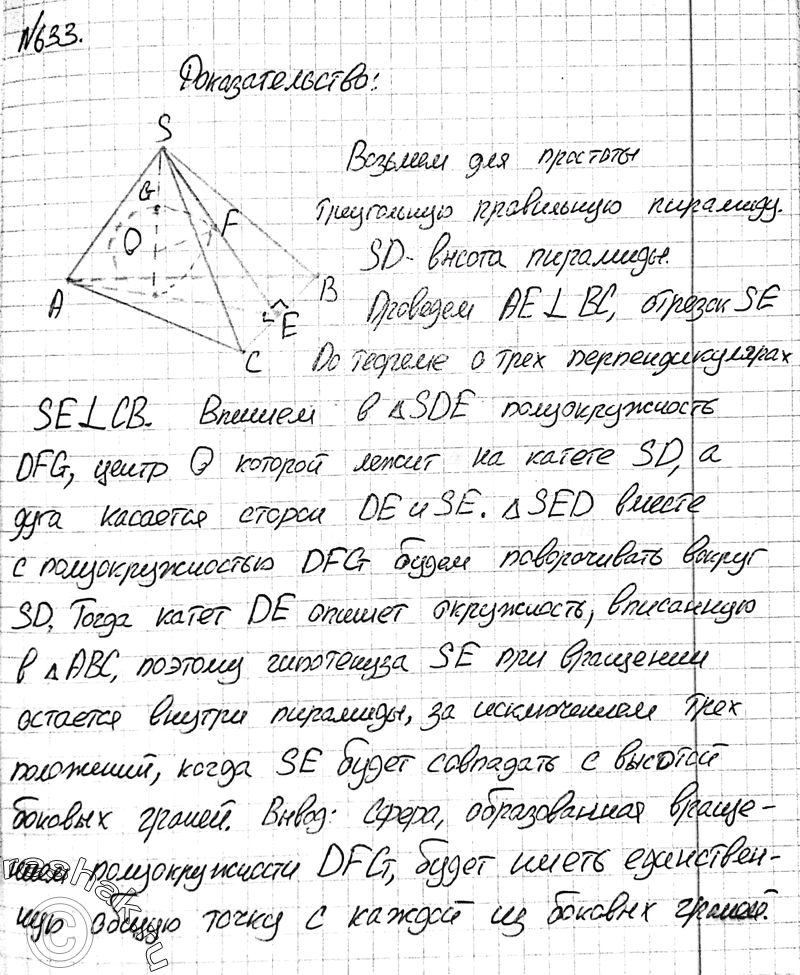 №633.
Доказательство:
S
G
F
O
A
B
E
C
Возьмем для простоты
треугольную правильную пирамиду.
SD- высота пирамиды.
Проведем AE⊥BC, отрезок SE
По теореме о трех перпендикулярах
SE⊥CB. Впишем в △SDE полуокружность
DFG, центр O которой лежит на катете SD, а
дуга касается сторон DE и SE. △SED вместе
с полуокружностью DFG будем поворачивать вокруг
SD. Тогда катет DE опишет окружность, вписанную
в △ABC, поэтому гипотенуза SE при вращении
остается внутри пирамиды, за исключением трех
положений, когда SE будет совпадать с высотой
боковых граней. Вывод: сфера, образованная враще-
нием полуокружности DFG, будет иметь единствен-
ную общую точку с каждой из боковых граней.
©reshak.ru